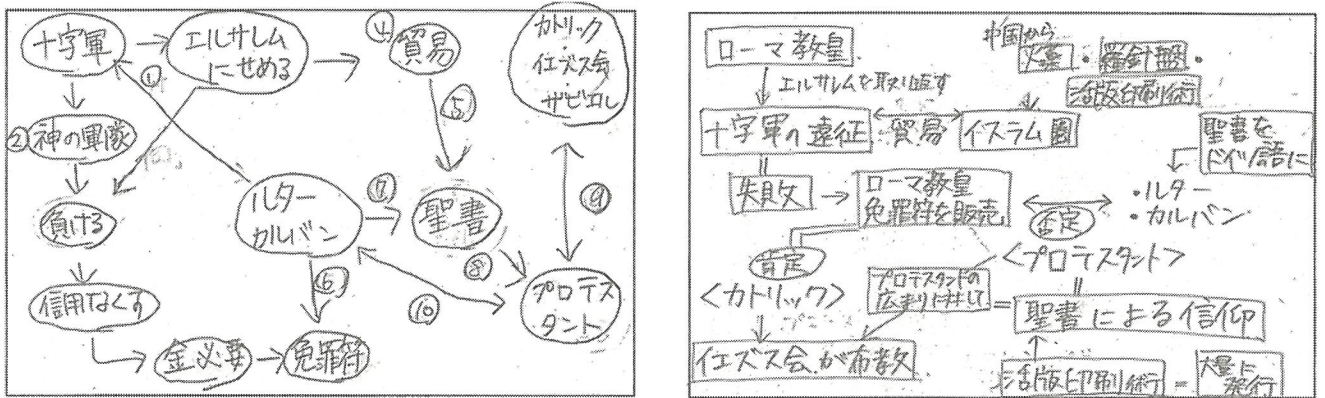 十字軍
エルサレム
にせめる
④
貿易
カトリック
イエズス会
ザビエル
①
②
神の軍隊
⑤
負ける
ルター
カルバン
⑦
聖書
⑨
信用なくす
⑥
⑧
⑩
プロテス
タント
金必要
免罪符
ローマ教皇
エルサレムを取り返す
中国から
火薬・羅針盤・
活版印刷術
十字軍の遠征
貿易
イスラム圏
聖書を
ドイツ語に
失敗
ローマ教皇
免罪符を販売
否定
・ルター
・カルバン
肯定
<プロテスタント>
<カトリック>
プロテスタントの
広まりに対して
聖書による信仰
イエズス会が布教
活版印刷術
=
大量に
発行